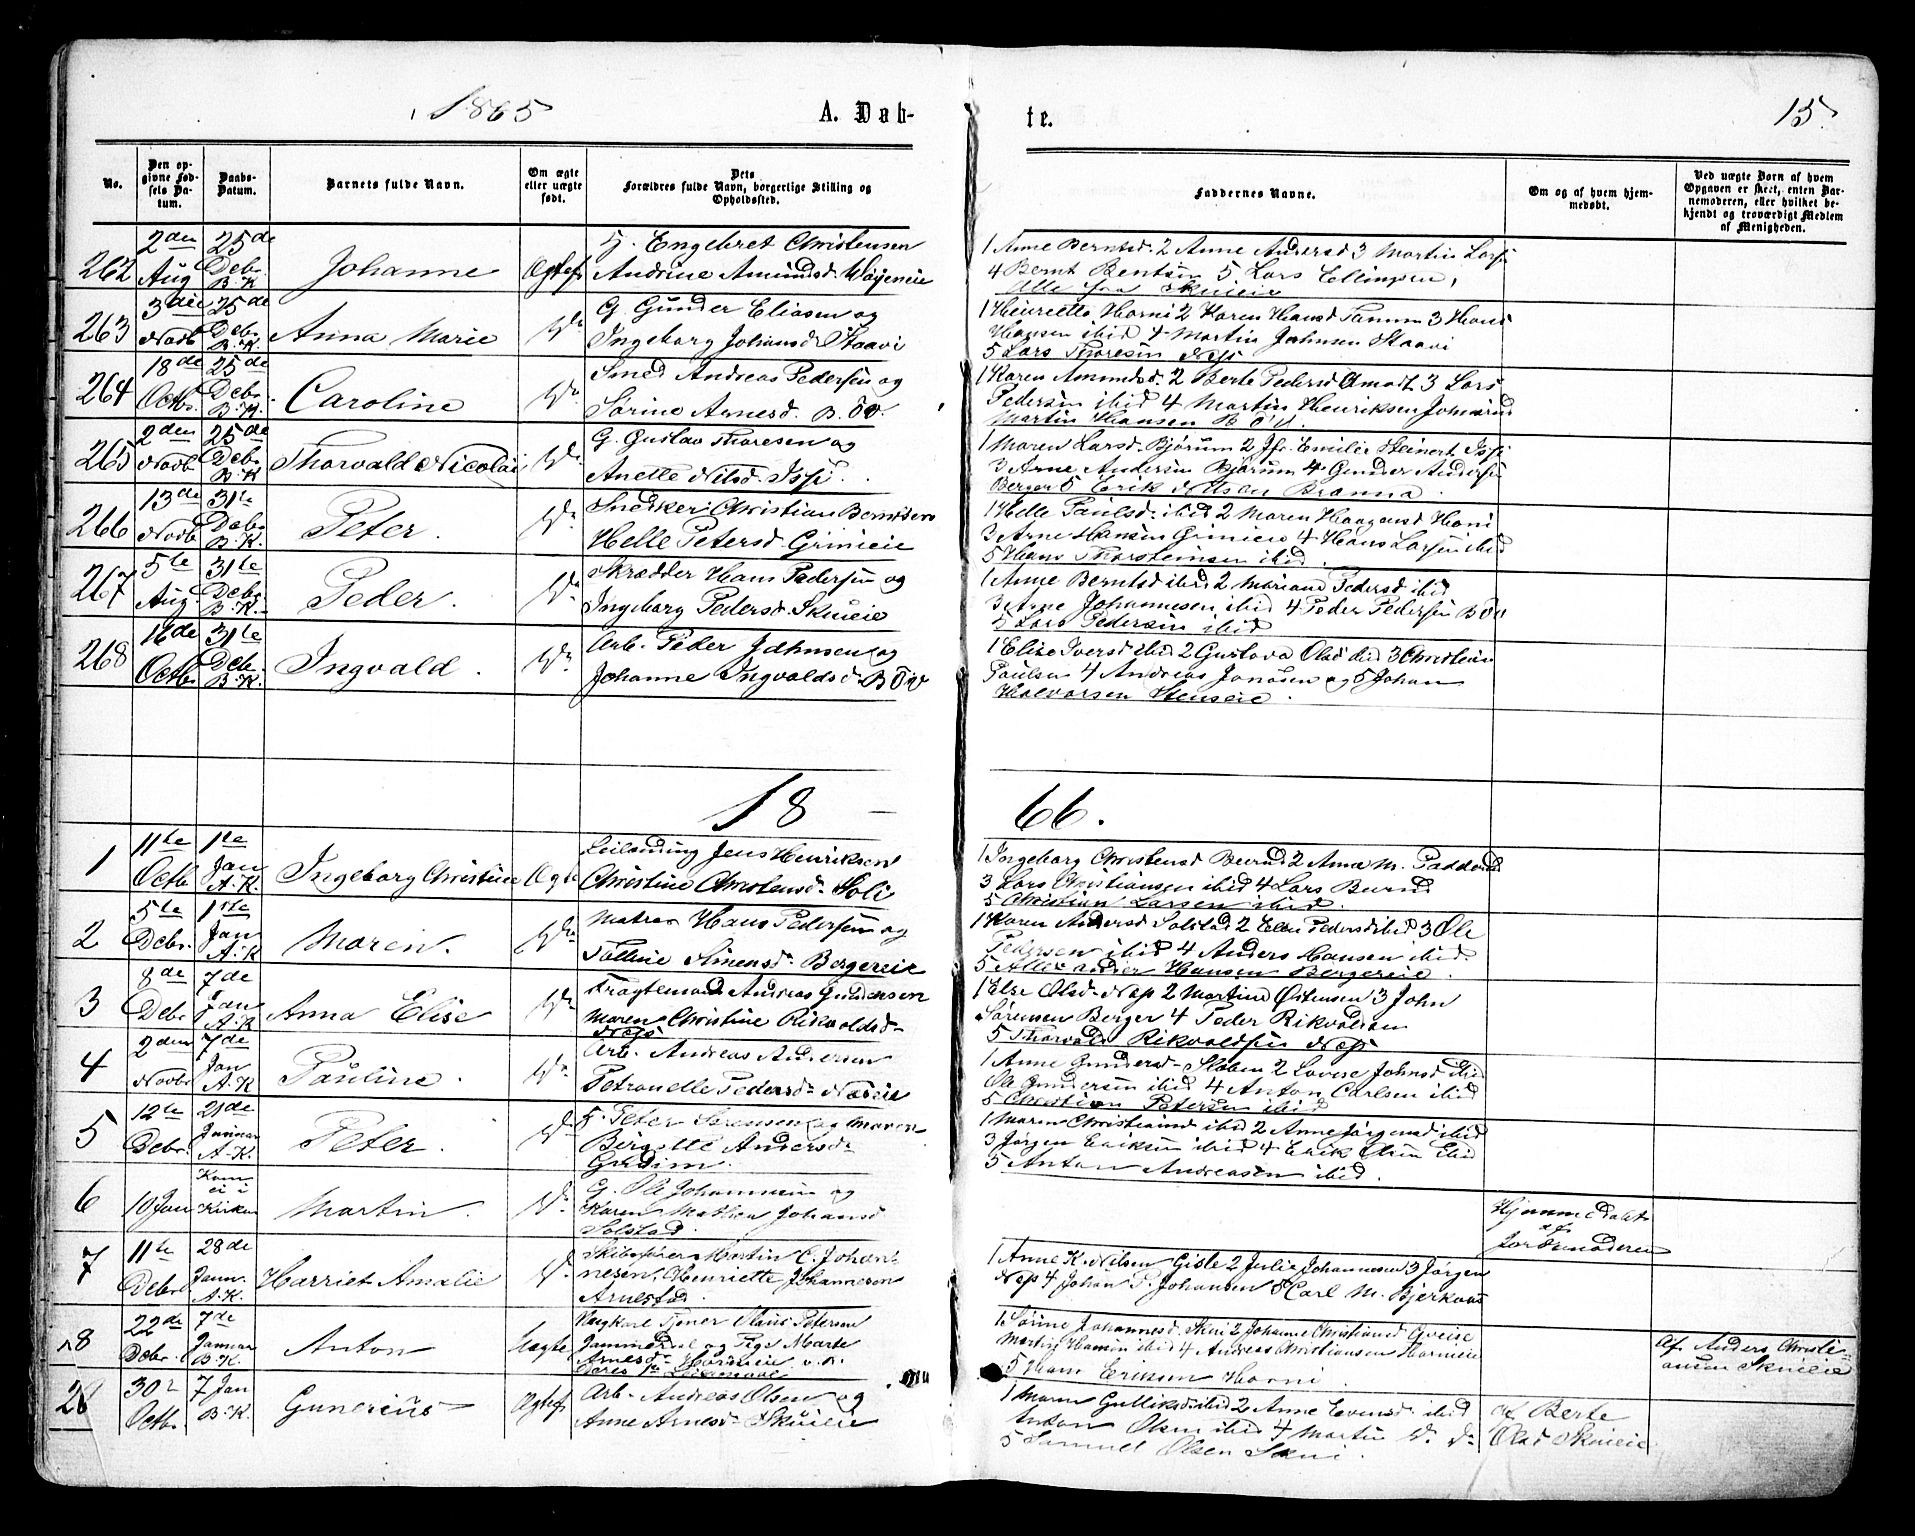 1865
A. Døb-
te.
15.
No.
Den op-
givne Fød-
sels Da-
tum.
Daabs-
Datum.
Barnets fulde Navn.
Om ægte
eller uægte
født.
Dets
Forældres fulde Navn, borgerlige Stilling og
Opholdssted.
Faddernes Navne.
Om og af hvem hjem-
medøbt.
Ved uægte Børn af hvem
Opgaven er skeet, enten Bar-
nemoderen, eller hvilket be-
kjendt og troværdigt Medlem
af Menigheden.
262
2den
Aug
25de
Debr.
B.K
Johanne
Ægtef
Engebret Christensen
Andrine Amundsd.
1 Anne Berntsd. 2 Anne Andersd 3 Martin Lars
4 Bernt Bentsen 5 Lars Ellingsen,
Alle fra Skuieie
263
3die
Novb
25de
Debr
B.K
Anna Marie
Do
G. Gunder Eliasen og
Ingeborg Johansd. Staavi
1 Henriette Horni 2 Karen Hansd Tanum 3 Hans
Hansen ibid 4 Martin Johnsen Staavi
5 Lars Thoresen Nes
264
18de
Octb.
25de
Debr.
B.K.
Caroline
Do
Smed Andreas Pedersen og
Sørine Arnesd. Böv.
1 Karen Amundsd. 2 Berte Pedersd 3 Lars
Pedersen ibid 4 Martin Henriksen
Martin Hansen
265
2den
Novb
25de
Debr
B.K
Thorvald Nicolai
Do
G. Gustav Thoresen og
Anette Nilsd. Isfi.
1 Maren Larsd. Bjørum 2 Jfr. Emilie Steinert Isfi
3 Arne Andersen Bjørum 4 Gunder Anders
Berger 5 Erik Nilsen Brænna.
266
13de
Novb
31te
Debr
B.K.
Peter.
Do
Snedker Christian Berntsen
Helle Petersd. Grinieie
1 Helle Paulsd. ibid 2 Maren Haagensd Horni
3 Arne Hansen Grinieie 4 Hans Larsen ibid
5 Hans Thorsteinsen ibid.
267
5te
Aug
31te
Debr
B.K.
Peder.
Do
Skrædder Hans Pedersen og
Ingeborg Pedersd. Skuieie
1 Anne Berntsd ibid 2 Mariane Pedersd ibid
3 Arne Johannesen ibid 4 Peder Pedersen Böv
5 Lars Pedersen ibid
268
16de
Octb.
31te
Debr.
B.K.
Ingvald.
Do
Arb. Peder Johnsen og
Johanne Ingvaldsd. Böv
1 Elise Iversd ibid 2 Gustava Olsd ibid 3 Christian
Paulsen 4 Andreas Jonasen og 5 Johan
Halvorsen Stenseie.
18
66.
1
11te
Octb
1te
Jan
A.K.
Ingeborg Christine
Ægte
Leilending Jens Henriksen
Christine Christensd. Soli
1 Ingeborg Christensd 2 Anne M.
3 Lars Christiansen ibid 4 Lars
5 Christian Larsen ibid.
2
5te
Debr.
1ste
Jan
A.K
Maren.
Do
Matros Hans Pedersen og
Simensd. Bergereie
1 Karen Andersd Solstad 2 Elen Pedersd ibid 3 Ole
Pedersen ibid 4 Anders Hansen ibid.
5 Hansen Bergereie.
3
8de
Debr
7de
Jan
A.K
Anna Elise
Do
Fragtemand Andreas Gundersen
Maren Christine Rikvoldsd.
Nes
1 Else Olsd. Nes 2 Martine Østensen 3 John
Sørensen Berger 4 Peder Rikvoldsen
5 Thorvald Rikvoldsen Nes
4
2den
Novbr
7de
Jan
A.K
Pauline.
Do
Arb. Andreas Andersen
Petronelle Pedersd. Næseie
1 Anne Gundersd. Staben 2 Lovise Johnsd ibid
Ole Gundersen ibid 4 Anton Carlsen ibid
5 Christian Petersen ibid
5
12te
Debr.
21de
Januar
A.K.
Peter.
Do
Peter Sørensen og Maren
Birgitte Andersd.
Gudim.
1 Maren Christiansd ibid 2 Anne Jørgensd ibid
3 Jørgen Eriksen ibid 4 Erik Olsen ibid
5 Anton Andreasen ibid.
6
10 Jan
Kom
ei i
Kirken
Martin.
Do
G. Ole Johannesen og
Karen Mathea Johansd
Solstad.
Hjemmedøbt
af
Jordemoderen
7
11te
Debr
28de
Janr.
A.K.
Harriet Amalie
Do
Skibsfører Martin C. Johan-
nesen, Henriette Johannesen
Arnestad.
1 Anne K. Nilsen Gisle 2 Julie Johannesen 3 Jørgen
Nes 4 Johan P. Johansen 5 Carl M. Bjerkaas
8
22de
Debr.
7de
Januar
B.K.
Anton
Uægte
Ungkarl Tjener Petersen
og Pige Marte
Arnesd. Horneie
1 Sørine Johannesd. Skui 2 Johanne Christiansd
Martin Hansen ibid 4 Andreas Christiansen Hornieie
5 Hans Eriksen Horni.
Af Anders Christi-
ansen Skuieie
28
30te
Octb.
7 Jan
B.K.
Gunerius
Ægtef
Arb. Andreas Olsen og
Anne Arnesd. Skuieie
1 Maren Gulliksd ibid 2 Anne Evensd. ibid
Anton Olsen ibid 4 Martin Do Do
5 Samuel Olsen Skui.
af Berte
Olsd Skuieie